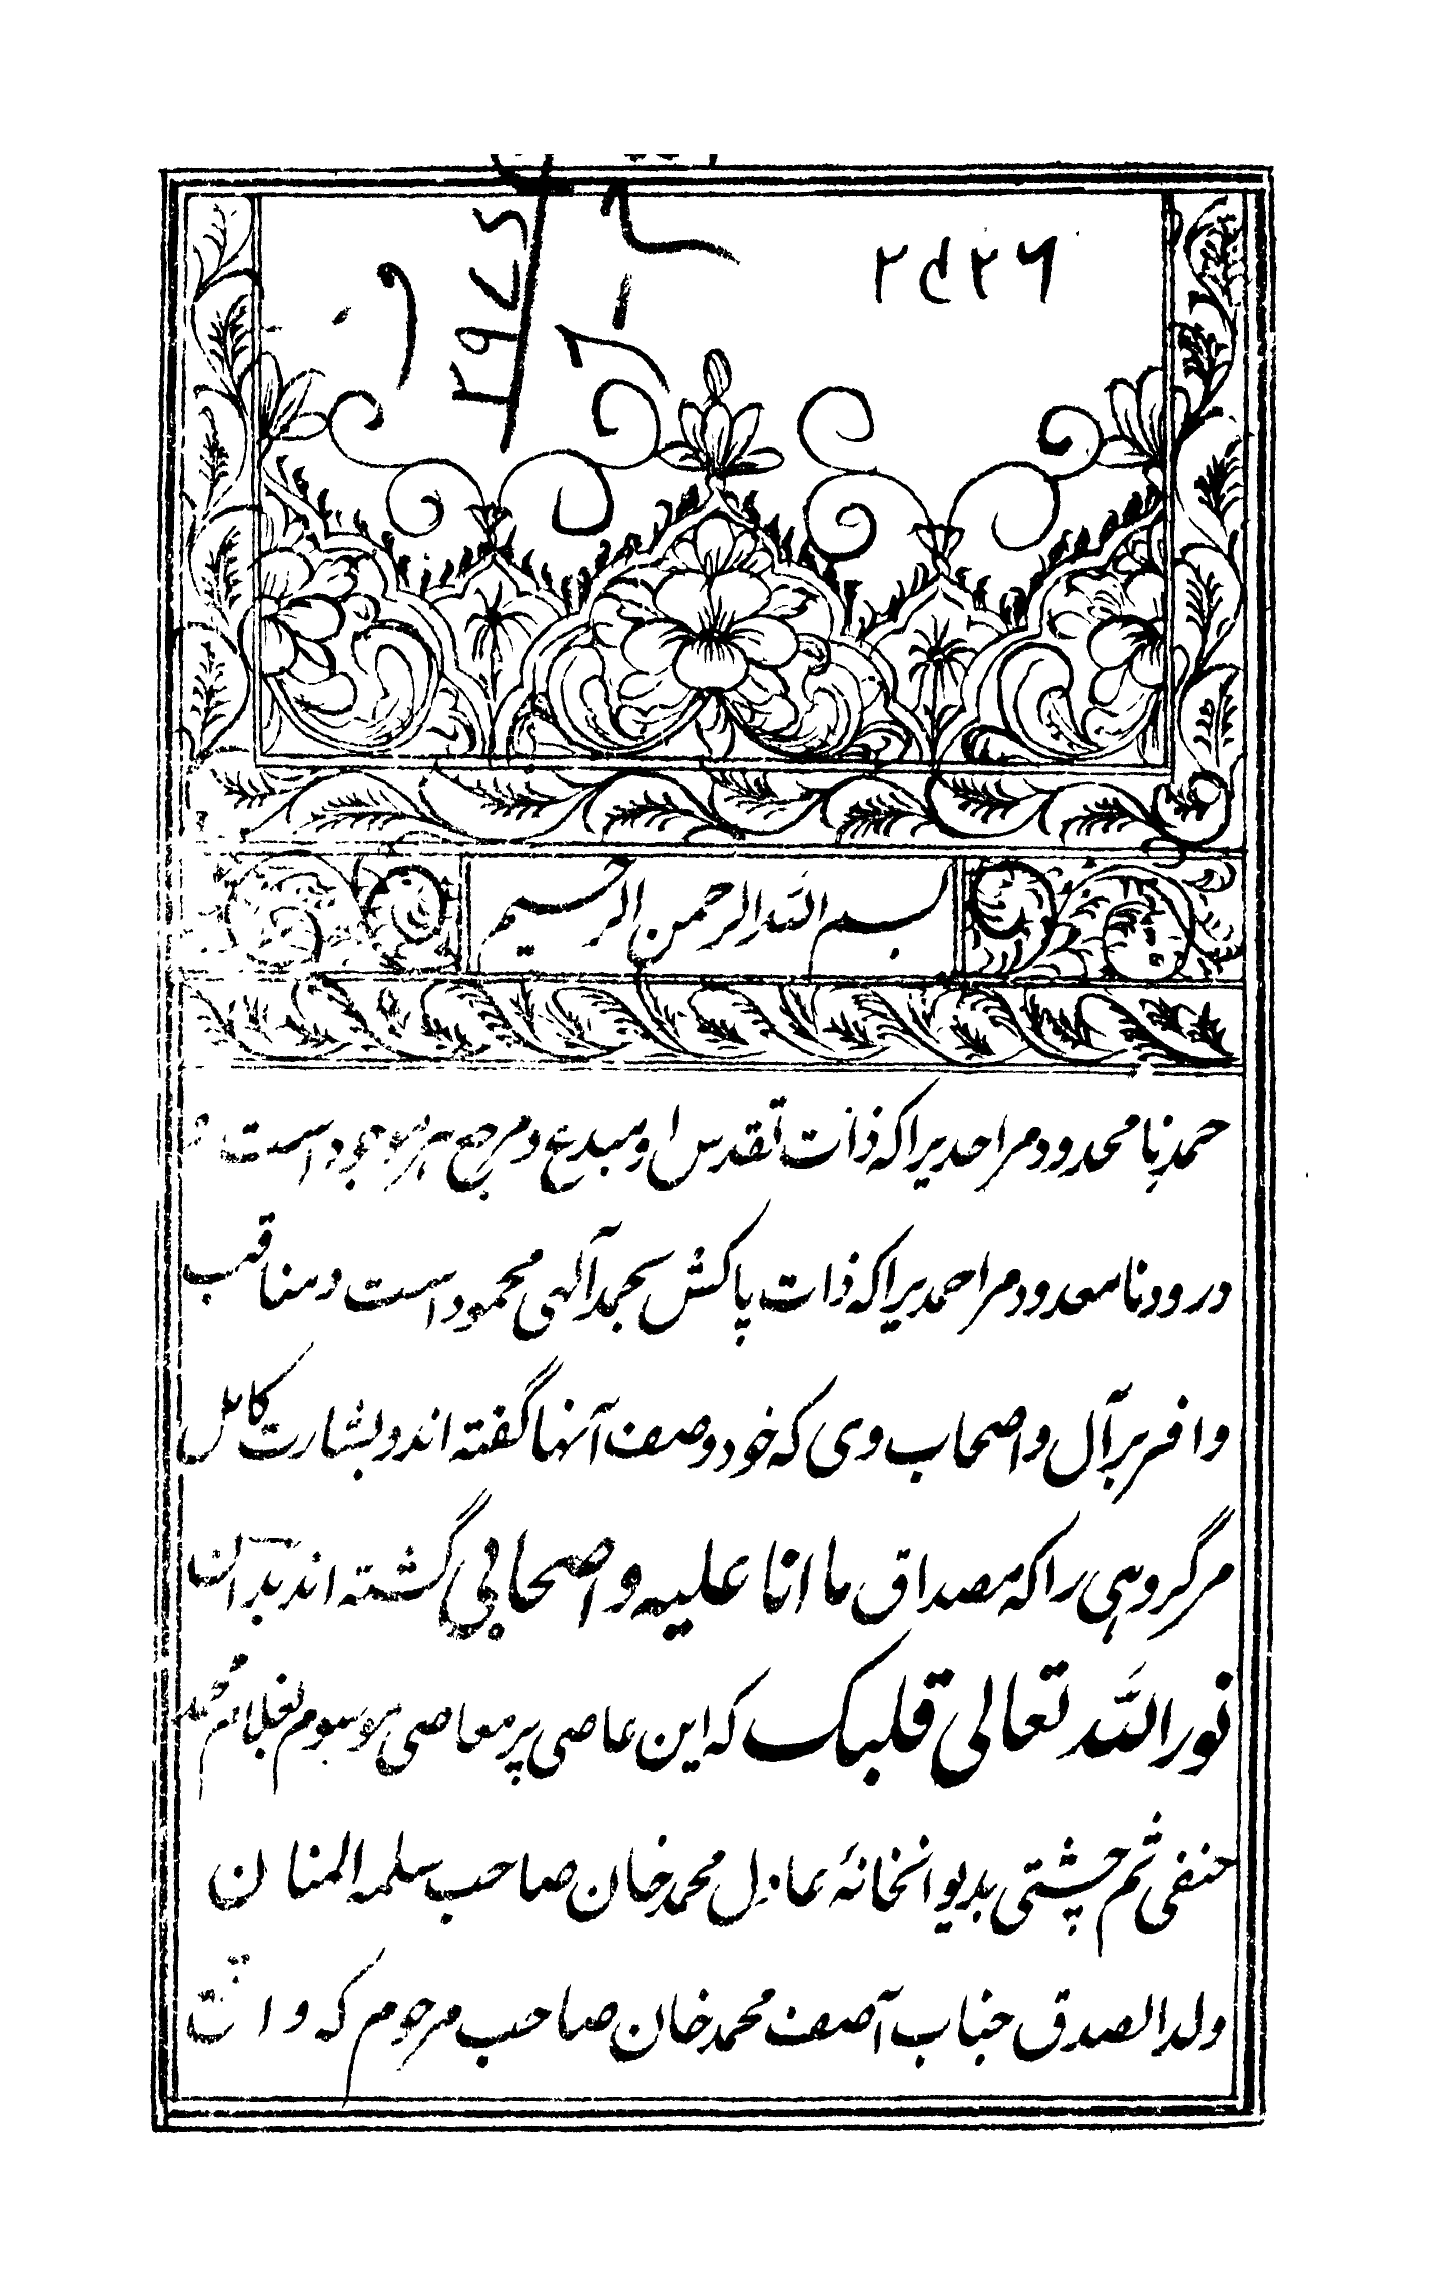 بسم الله الرحمن الرحیم
حمد نا محدود مر احدیرا که ذات تقدس او مبدع و مرجع هر موجود است و
درود نا معدود مر احمدیرا که ذات پاکش بحمد آلهی محمود است و مناقب
وافر بر آل و اصحاب وی که خود وصف آنها گفته اند و بشارت کامل
مر گروهی را که مصداق ما انا علیه و اصحابی گشته اند بدان
نور الله تعالی قلبک که این عاصی پر معاصی موسوم بغلام محمد
حنفی ثم چشتی بدیوانخانهٔ عادل محمد خان صاحب سلمه المنان
ولد الصدق جناب آصف محمد خان صاحب مرحوم که و